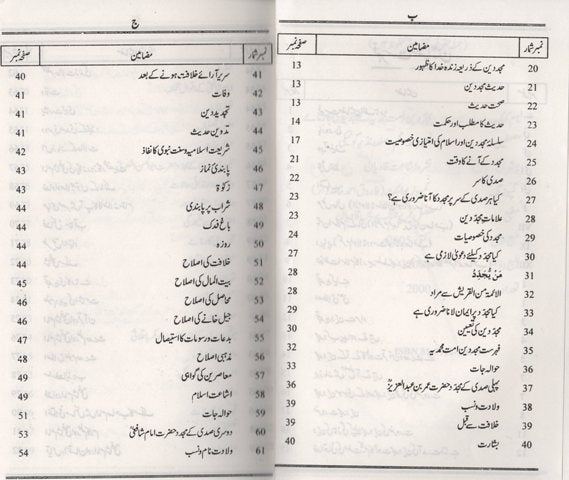 ب
نمبر شمار مضامین صفحہ نمبر
20 مجددین کے ذریعہ زندہ خدا کا ظہور 13
21 حدیث مجددین 13
22 صحت حدیث 13
23 حدیث کا مطلب اور حکمت 14
24 سلسلہ مجددین اور اسلام کی امتیازی خصوصیت 17
25 مجدد کے آنے کا وقت 21
26 صدی کا سر 22
27 کیا ہر صدی کے سر پر مجدد کا آنا ضروری ہے؟ 23
28 علامات مجددین 23
29 مجدد کی خصوصیات
30 کیا مجدد کیلئے دعویٰ لازمی ہے 27
31 مَنْ یُّجَدِّدُ 28
32 الائمۃ من القریش سے مراد 28
33 کیا مجدد پر ایمان لانا ضروری ہے
34 مجددین کی تعیین 30
35 فہرست مجددین امت محمدیہ 32
36 حوالہ جات
37 پہلی صدی کے مجدد حضرت عمر بن عبدالعزیزؒ 36
38 ولادت و نسب
39 خلافت سے قبل
40 بشارت 40
ج
نمبر شمار مضامین صفحہ نمبر
41 سریر آرائے خلافت ہونے کے بعد 40
42 وفات 41
43 تجدید دین 41
44 تدوین حدیث 41
45 شریعت اسلامیہ و سنت نبوی کا نفاذ 42
46 پابندیٔ نماز 43
47 زکوۃ 43
48 شراب پر پابندی 44
49 باغ فدک 44
50 روزہ 44
51 خلافت کی اصلاح 44
52 بیت المال کی اصلاح 45
53 محاصل کی اصلاح 46
54 جیل خانے کی اصلاح 46
55 بدعات و رسومات کا استیصال 47
56 مذہبی اصلاح 48
57 معاصرین کی گواہی 49
58 اشاعت اسلام 49
59 حوالہ جات 51
60 دوسری صدی کے مجدد حضرت امام شافعیؒ 53
61 ولادت نام و نسب 54